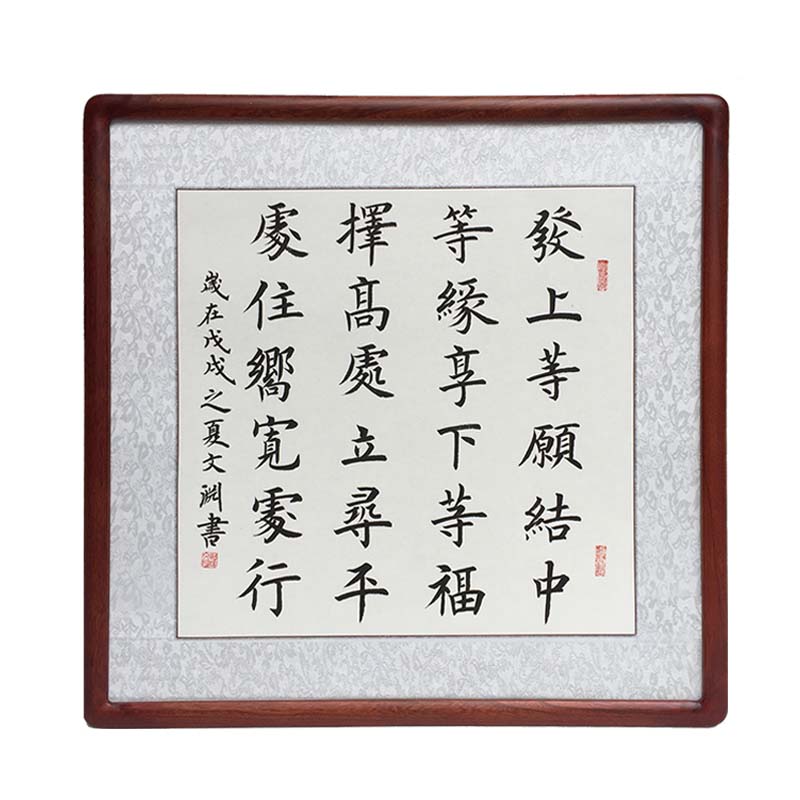 發上等願結中
等緣享下等福
擇高處立尋平
處住嚮寬處行
歲在戊戌之夏文淵書